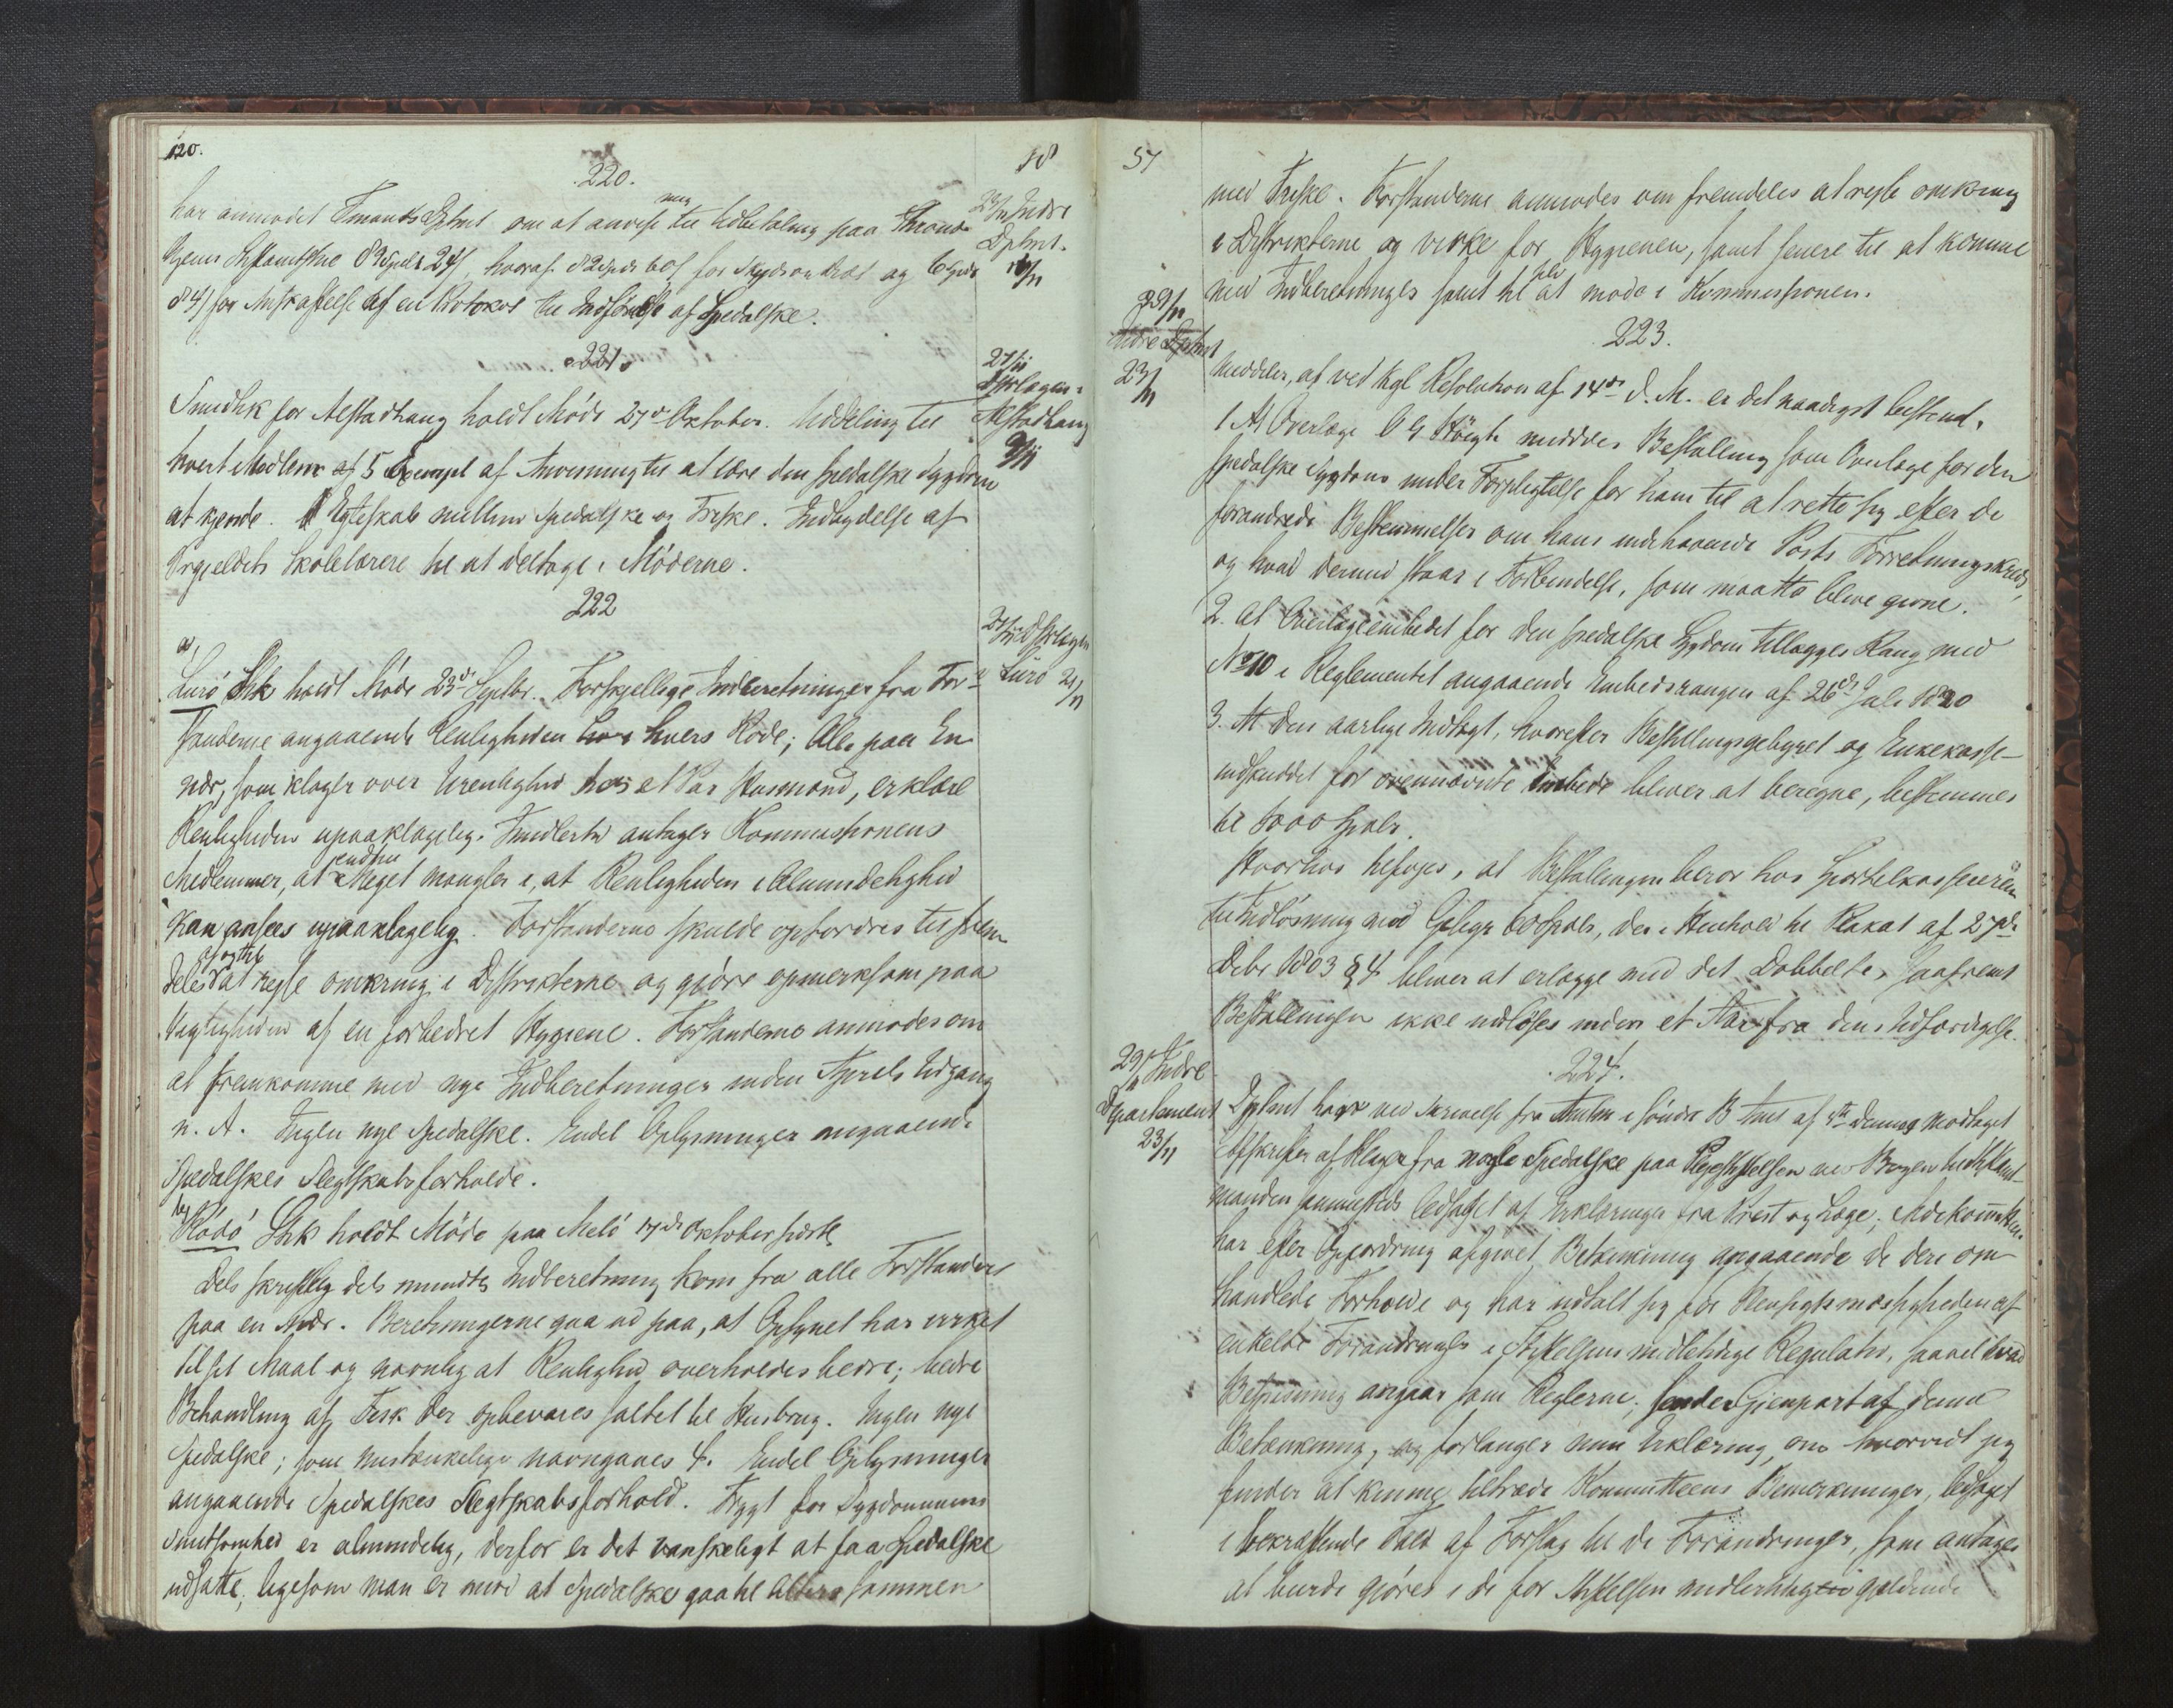 120.
18
220.
har anmodet Finants Dptmt om at anvise mig til Udbetaling paa Thrond-
hjems Stiftamtstue 89 Spd 24 ß, hvoraf 82 Spd 60 ß for Skydsudlæg og 6 Spd
84 ß for Anskaffelse af en Protokol til Indførelse af Spedalske.
23/11 Indre
Dptmt.
16/11
221.
Sundhk for Alstadhaug holdt Møde 27de Oktober. Uddeling til
hvert Medlem af 5 Exempl af Anvisning til at lære den spedalske Sygdom
at kjende. Egteskab mellem Spedalske og Friske. Indbydelse af
Prgjeldets Skolelærere til at deltage i Møderne.
27/11
Dstrlægen i
Alstadhaug
9/11
222
a,
Lurø Shk holdt Møde 23de Septbr. Forskjellige Indberetninger fra For-
standerne angaaende Renligheden i hvers Rode; Alle paa En
nær, som klager over Urenlighed hos et Par Husmænd, erklære
Renligheden upaaklagelig. Imidlertid antager Kommissionens
Medlemmer, at endnu Meget mangler i, at Renligheden i Almindelighed
kan ansees upaaklagelig. Forstanderne skulde opfordres til frem-
deles at reise omkring i Distrikterne og gjøre opmerksom paa
Vigtigheden af en forbedret Hygiene. Forstanderne anmodes om
at fremkomme med nye Indberetninger inden Aprils Udgang
n. A. Ingen nye Spedalske. Endel Oplysninger angaaende
Spedalskes Slegtskabsforholde.
27/11 Dstrlægen
i Lurø 21/11
b,
Rødø Shk holdt Møde paa Melø 17de Oktober sidstl.
Dels skriftlig dels mundtlig Indberetning kom fra alle Forstandere
paa en nær. Beretningerne gaa ud paa, at Opsynet har virket
til sit Maal og navnlig at Renlighed overholdes bedre; bedre
Behandling af Fisk der opbevares saltet til Husbrug. Ingen nye
Spedalske; som mistænkelige navngaves 4. Endel Oplysninger
angaaende Spedalskes Slegtskabsforhold. Frygt for Sygdommens
Smitsomhed er almindelig, derfor er det vanskeligt at faa Spedalske
udsatte, ligesom man er imod at Spedalske gaa til Alters sammen
57
med Friske. Forstanderne anmodes om fremdeles at reise omkring
i Distrikterne og virke for Hygienen, samt senere til at komme
med Indberetninger samt til selv at møde i Kommissionen.
223.
29/11
Indre Dptmt
23/11
meddeler, at ved kgl Resolution af 14de d. M. er det naadigst bestemt,
1 At Overlæge O G Høegh meddeles Bestalling som Overlæge for den
spedalske Sygdom under Forpligtelse for ham til at rette sig efter de
forandrede Bestemmelser om hans indehavende Posts Forretningskreds,
og hvad dermed staar i Forbindelse, som maatte blive givne.
2. at Overlægeembedet for den spedalske Sygdom tillægges Rang med
No 10 i Reglementet angaaende Embedsrangen af 26de Juli 1820
3. At den aarlige Indtægt, hvorefter Bestallingsgebyret og Enkekasse-
indskuddet for ovennævnte Embede bliver at beregne, bestemmes
til 1000 Spdlr.
Hvorhos tilføjes, at Bestallingen beror hos Sportelkassereren
til Indløsning med Gebyr 60 Spdlr, der i Henhold til Plakat af 27de
Decbr 1803 § 4 bliver at erlægge med det Dobbelte, saafremt
Bestallingen ikke indløses inden et Aar fra dens Udfærdigelse.
224.
29/11 Indre
Departement
23/11
Dptmt har ved Skrivelse fra Amtm i søndre B Amt af 4de dennes modtaget
Afskrifter af Klage fra nogle Spedalske paa Plejestiftelsen ved Bergen til Stiftamt-
manden sammesteds ledsaget af Erklæringer fra Prest og Læge;
har efter Opfordring afgivet Betænkning angaaende de deri om-
handlede Forholde og har udtalt sig for Hensigtsmæssigheden af
enkelte Forandringer i Stiftelsens midlertidige Regulativ, saavel hvad
Bespisning angaar som Reglerne; sender Gjenpart af denne
Betænkning, og forlanger min Erklæring, om hvorvidt jeg
finder at kunne tiltræde Kommitteens Bemerkninger, ledsaget
i bekræftende Fald af Forslag til de Forandringer, som antages
at burde gjøres i de for Stiftelsen midlertidig gjeldende